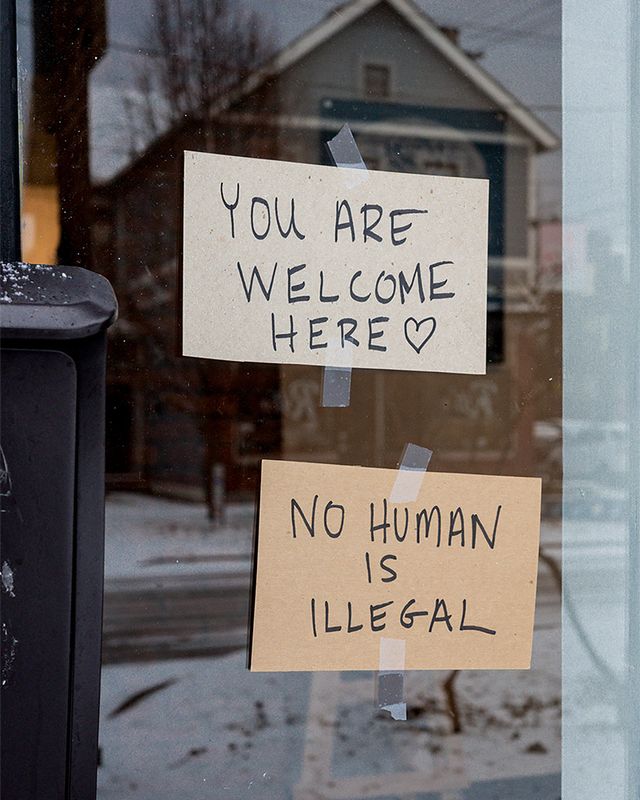 YOU ARE
WELCOME
HERE ♡
NO HUMAN
IS
ILLEGAL